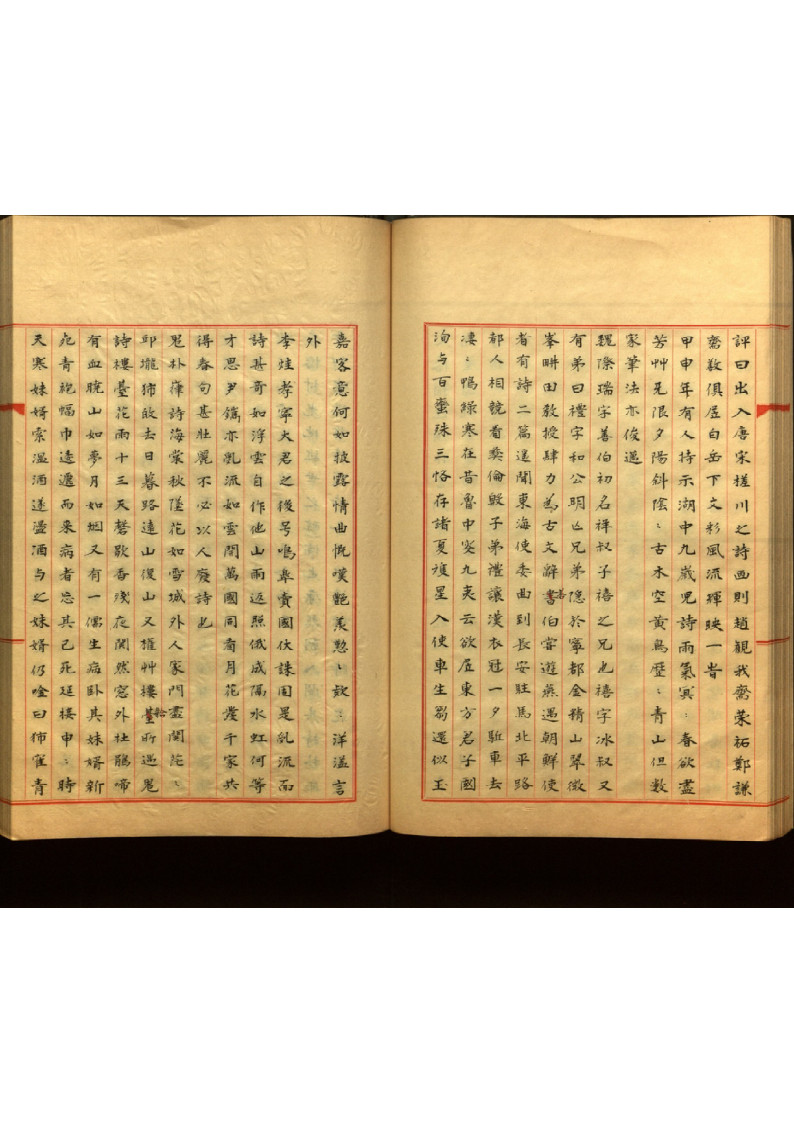 評曰出入唐宋槎川之詩西則趙觀我齋萊祐鄭謙
齋敾俱居白岳下文彩風流輝映一昔
甲申年有人持示湖中九歲兒詩雨氣冥〻春欲盡
芳艸旡限夕陽斜陰〻古木空黃鳥歷〻青山但數
家筆法亦俊邁
魏際瑞字善伯初名祥叔子禧之兄也禧字冰叔又
有弟曰禮字和公明亡兄弟隱於寧都金精山翠微
峯畊田敎授肆力爲古文辭書善伯甞遊燕遇朝鮮使
者有詩二篇送聞東海使委曲到長安駐馬北平路
都人相競看彜倫毀子弟禮讓漢衣冠一夕駈車去
凄〻鴨綠寒在昔魯中叟九夷云欲居東方君子國
洵与百蠻殊三恪存諸夏瓊星入使車生芻還似玉
嘉客意何如披露情曲慨嘆艶羡懃〻欵〻洋溢言
外
李烓孝寧大君之後号鳴皐賣國伏誅固是乱流而
詩甚奇如浮雲自作他山雨返照俄成隔水虹何等
才思尹鑴亦乱流如雲開萬國同看月花發千家共
得春句甚壯麗不必以人廢詩也
嵬朴葎詩海棠秋墜花如雪城外人家門盡関茫〻
邱壠獨皈去日暮路遠山復山又擢艸樓臺昕過嵬
詩樓臺花雨十三天磬歇香殘夜闃然窓外杜鵑啼
有血曉山如夢月如烟又有一儒生病卧其妹婿新
死青袍幅巾逶邐而來病者忘其已死廷樓申〻時
天寒妹婿索溫酒遂盪酒与之妹婿仍唫曰獨寉青